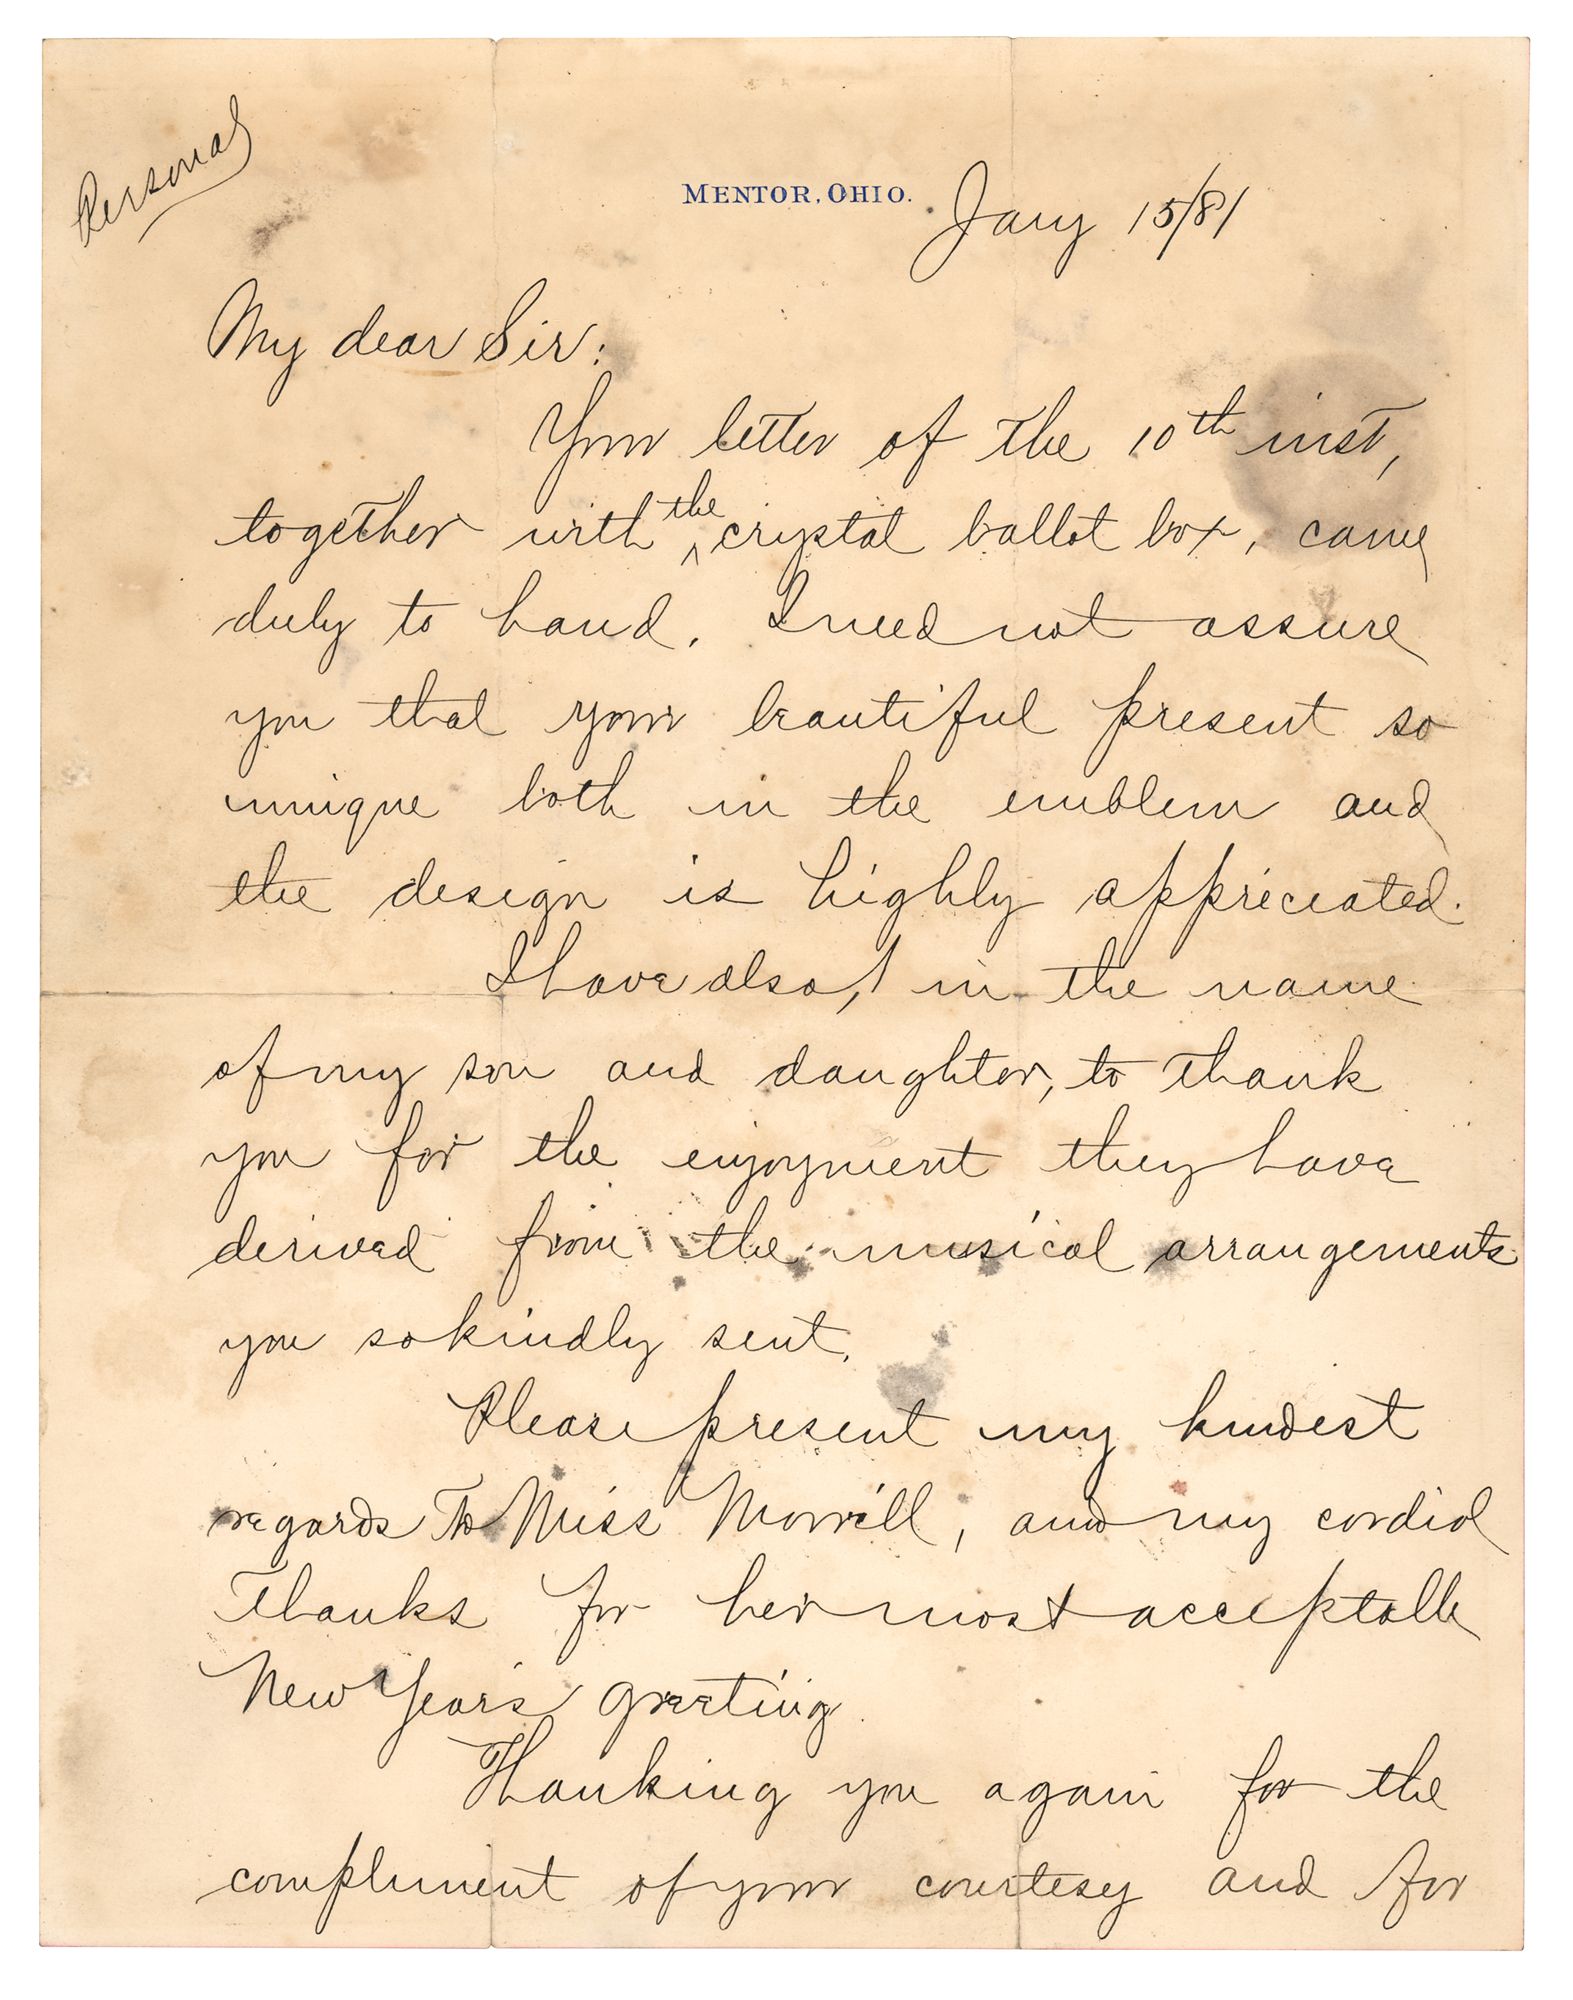 Personal
MENTOR, OHIO. Jany 15/81
My dear Sir:
Your letter of the 10th inst,
together with the crystal ballot box, came
duly to hand. I need not assure
you that your beautiful present so
unique both in the emblem and
the design is highly appreciated.
I have also, in the name
of my son and daughter, to thank
you for the enjoyment they have
derived from the musical arrangements
you so kindly sent.
Please present my kindest
regards to Miss Morrill, and my cordial
Thanks for her most acceptable
New Year's greeting
Thanking you again for the
compliment of your courtesy and for